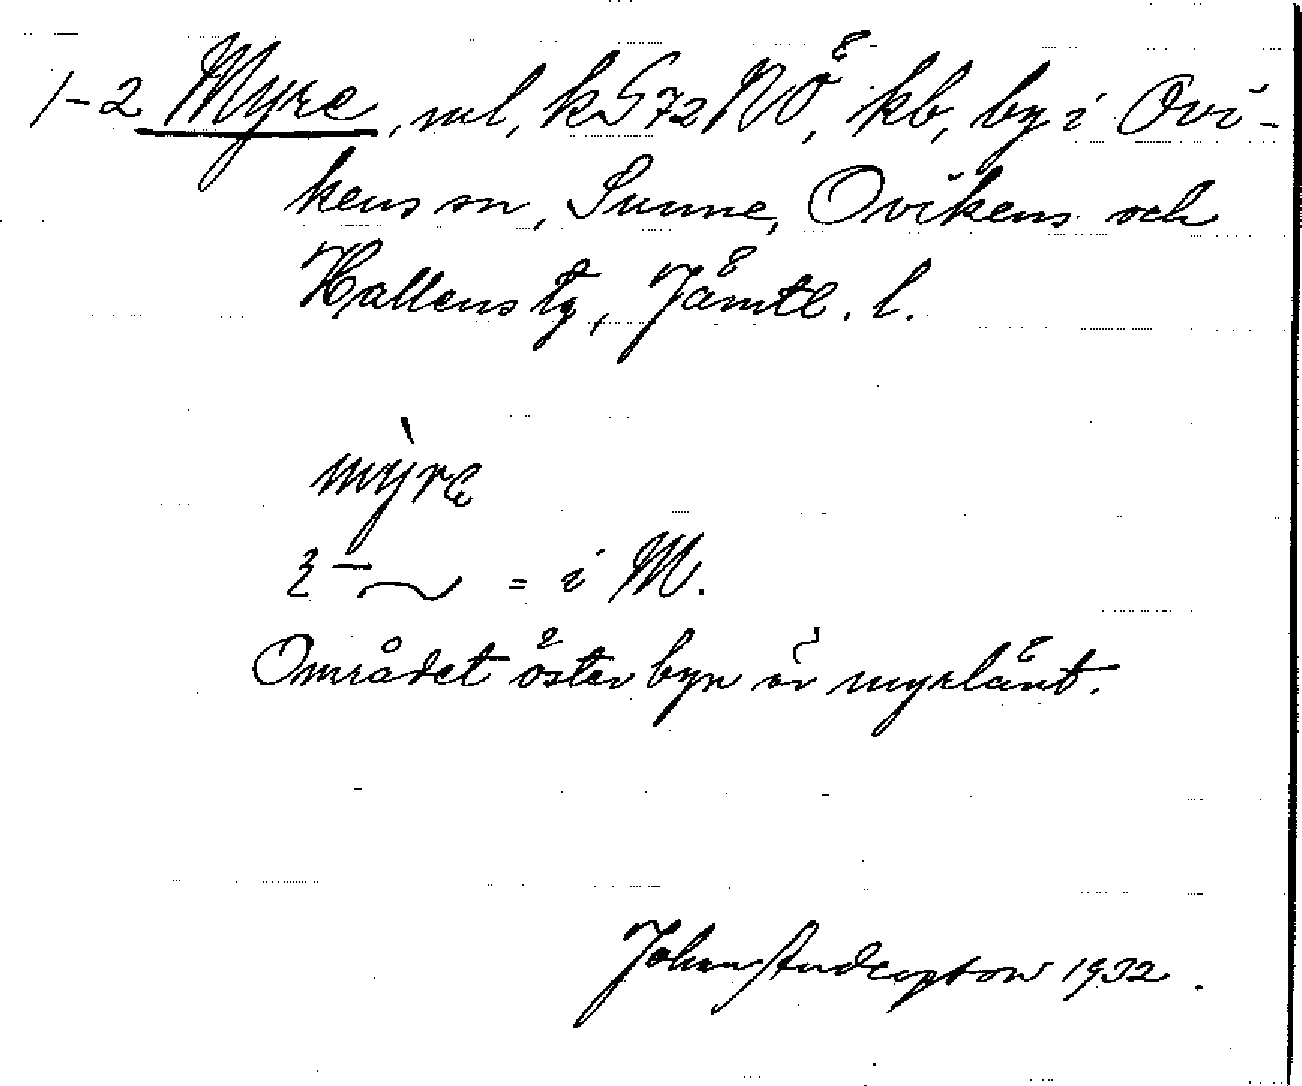 1-2 Myre, ml, kS72NÖ, kb, by i Ovi-
kens sn, Sunne, Ovikens och
Hallens tg, Jämtl. l.
mỳre
= i M.
Området öster byn är myrlänt.
Johan 1932.